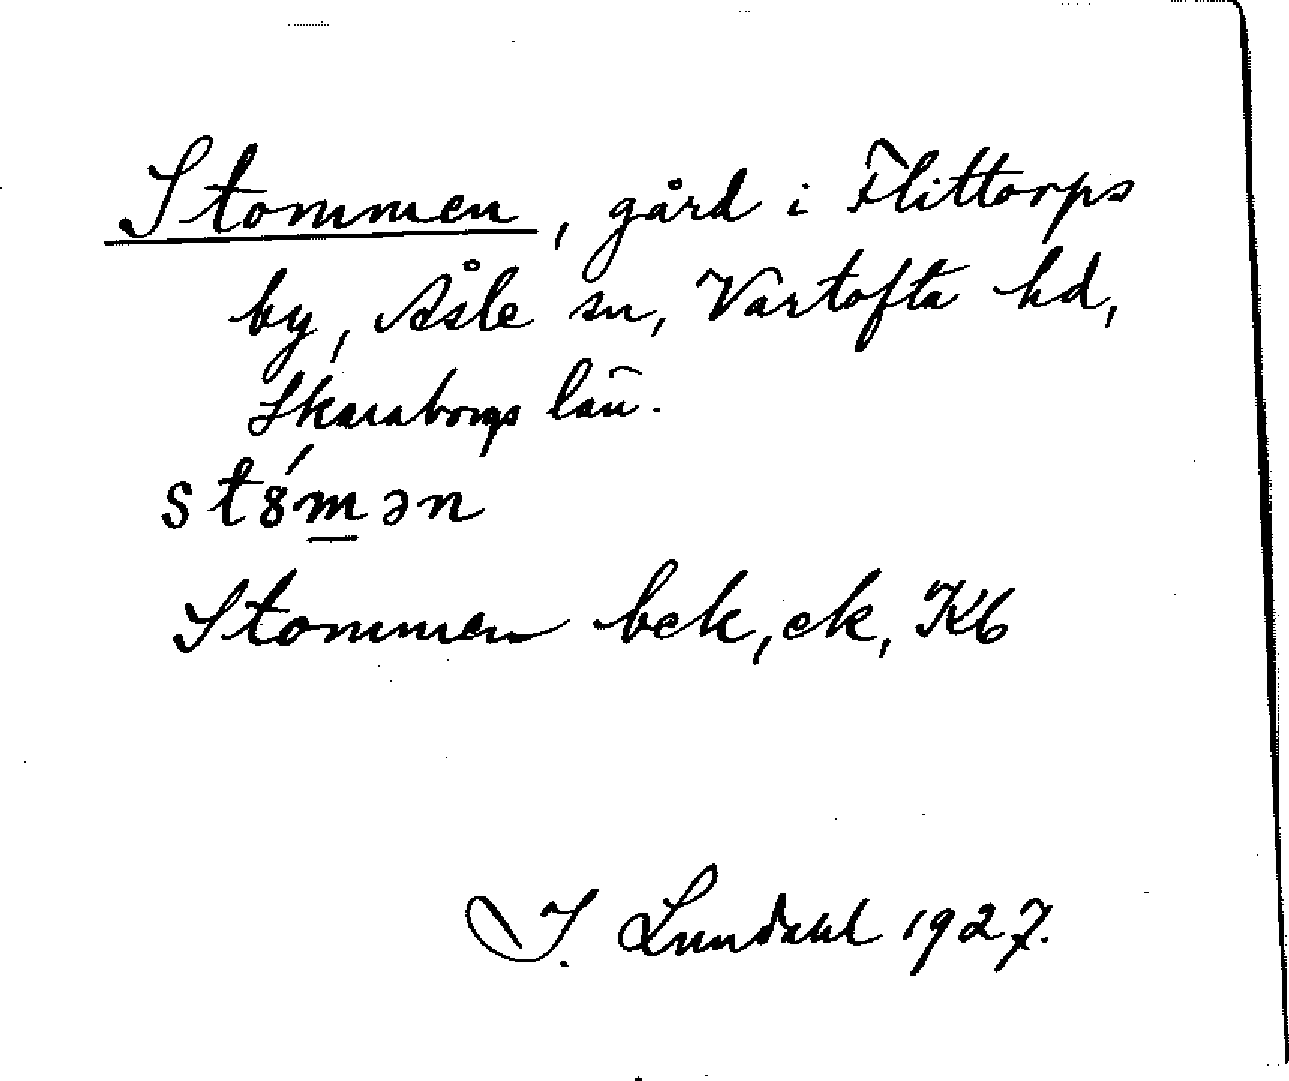 Stommen, gård i Flittorps
by, Åsle sn, Vartofta hd,
Skaraborgs län.
st8́mən
Stommen bek, ek, Kb
I. Lundahl 1927.